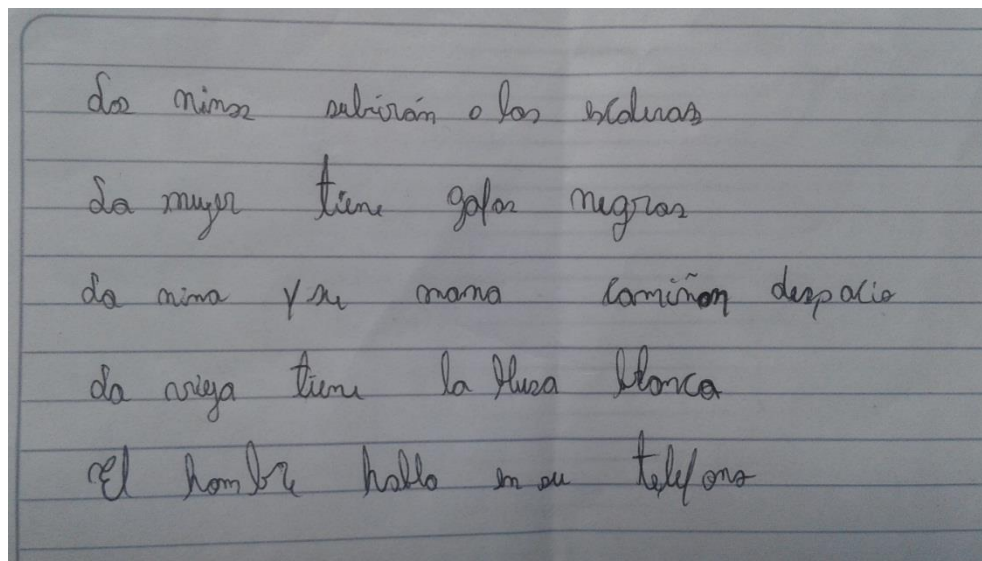 Los ninos subirán a las escaleras
La mujer tiene gafas negras
La nina y su mama camiñan despacio
La vieja tiene la blusa blanca
El hombre habla en su telefono